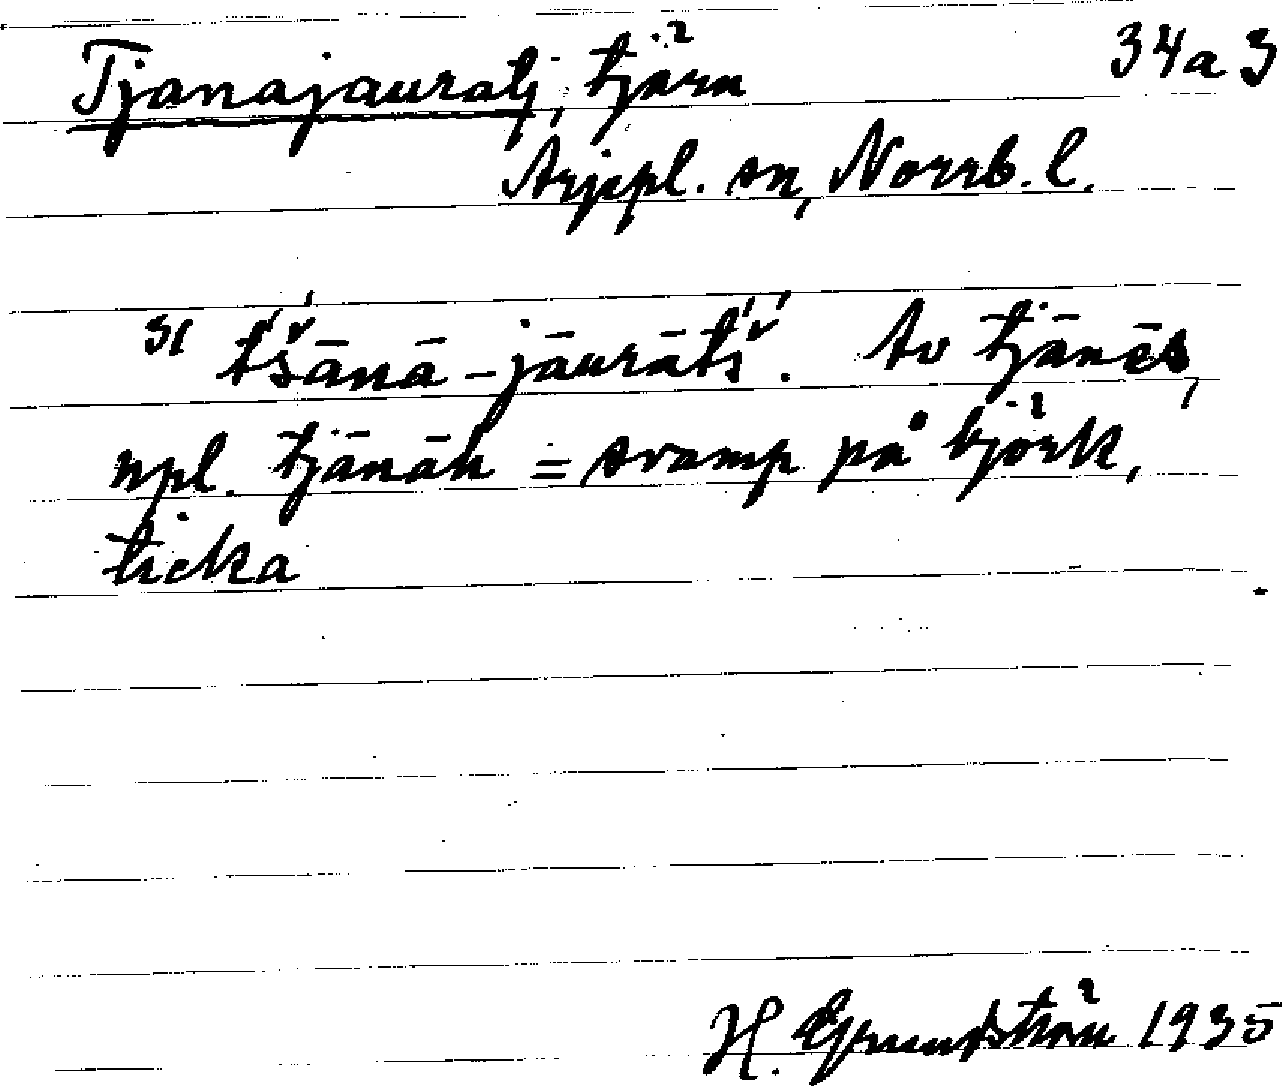 Tjanajauratj, tjärn 34a3
Arjepl. sn, Norrb. l.
31 t́š́ānā-jāurāt́š́. Av tjānēs,
npl. tjānāh = svamp på björk,
ticka
H. Grundström 1935